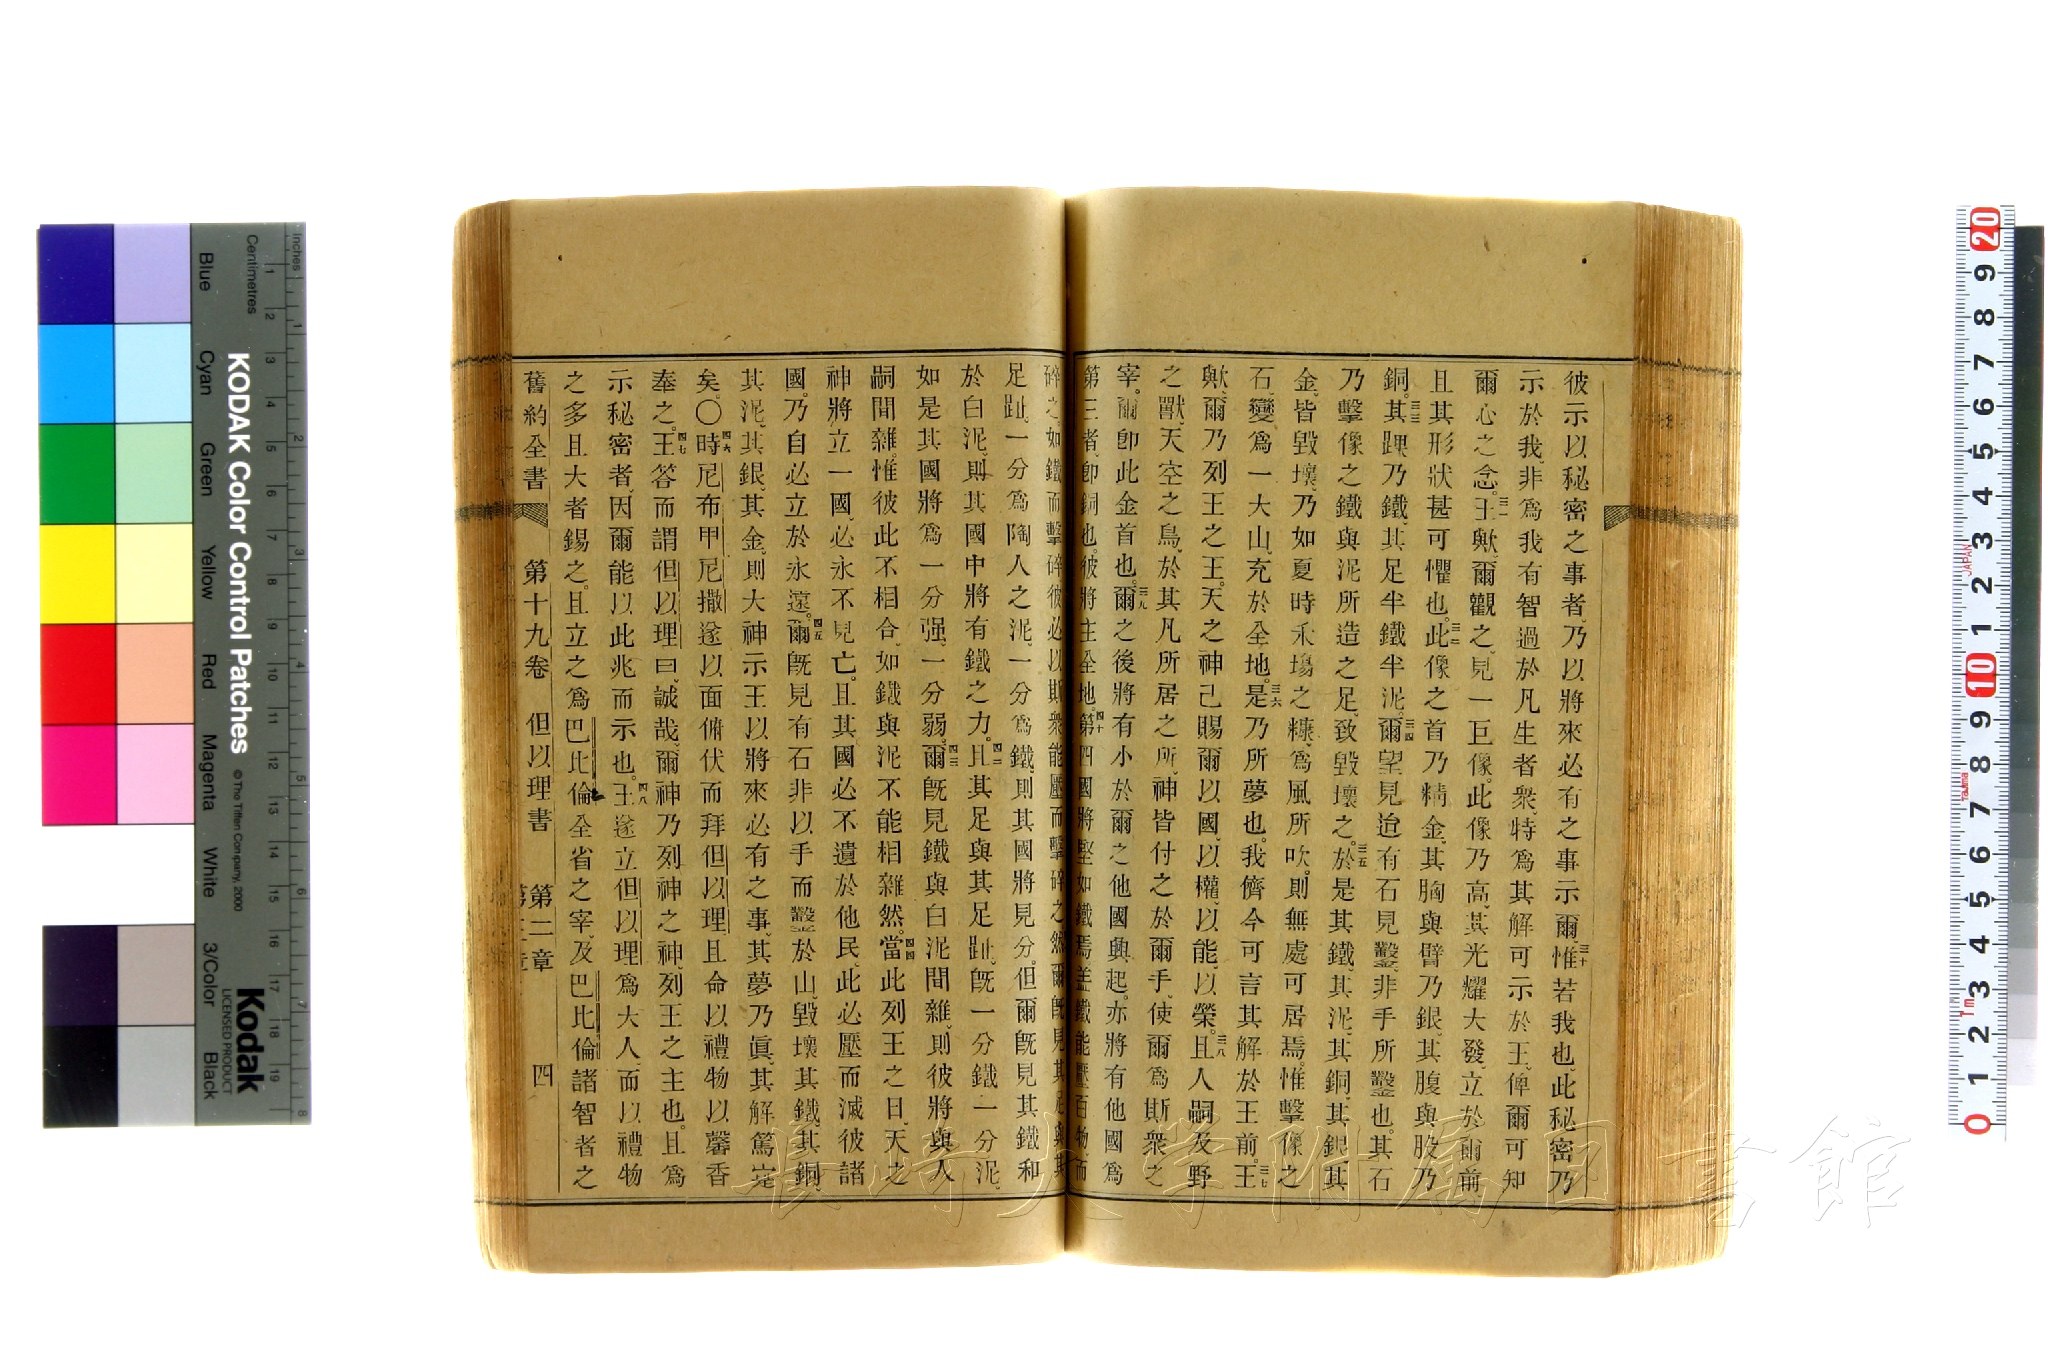 彼示以秘密之事者、乃以將來必有之事示爾、三十惟若我也、此秘密乃
示於我、非爲我有智過於凡生者衆、特爲其解可示於王、俾爾可知
爾心之念。三一王歟、爾觀之、見一巨像。此像乃高、其光耀大發、立於爾前
且其形狀甚可懼也。三二此像之首乃精金、其胸與臂乃銀、其腹與股乃
銅。三三其踝乃鐵、其足半鐵半泥。三四爾望見迨有石見鑿、非手所鑿也。其石
乃擊像之鐵與泥所造之足、致毀壞之。三五於是其鐵、其泥、其銅、其銀、其
金、皆毀壞、乃如夏時禾塲之糠、爲風所吹、則無處可居焉。惟擊像之
石、變爲一大山、充於全地。三六是乃所夢也。我儕今可言其解於王前。三七王
歟、爾乃列王之王。天之神已賜爾以國、以權、以能、以榮。三八且人嗣及野
之獸、天空之鳥、於其凡所居之所、神皆付之於爾手、使爾爲斯衆之
宰。爾卽此金首也。三九爾之後將有小於爾之他國興起。亦將有他國爲
第三者、卽銅也。彼將主全地。四十第四國將堅如鐵焉、盖鐵能壓百物而
碎之。如鐵而擊碎、彼必以斯衆能壓而擊碎之然。爾旣見其足與其
足趾、一分爲陶人之泥、一分爲鐵、則其國將見分。但爾旣見其鐵和
於白泥、則其國中將有鐵之力。四二且其足與其足趾、旣一分鐵一分泥、
如是其國將爲一分强、一分弱。四三爾旣見鐵與白泥間雜、則彼將與人
嗣間雜。惟彼此不相合、如鐵與泥不能相雜然。四四當此列王之日、天之
神將立一國、必永不見亡。且其國必不遺於他民、此必壓而滅彼諸
國。乃自必立於永遠。四五爾旣見有石非以手而鑿於山、毀壞其鐵、其銅、
其泥、其銀、其金、則大神示王以將來必有之事。其夢乃眞、其解篤定
矣。〇四六時尼布甲尼撒遂以面俯伏而拜但以理、且命以禮物以馨香
奉之。四七王答而謂但以理曰、誠哉、爾神乃列神之神、列王之主也。且爲
示秘密者、因爾能以此兆而示也。四八王遂立但以理爲大人、而以禮物
之多且大者錫之。且立之爲巴比倫全省之宰、及巴比倫諸智者之
舊約全書 第十九卷 但以理書 第二章 四
KODAK Color Control Patches
© The Tiffen Company, 2000
Kodak
LICENSED PRODUCT
Inches
Centimetres
Blue
Cyan
Green
Yellow
Red
Magenta
White
3/Color
Black
1 2 3 4 5 6 7 8 9 10 11 12 13 14 15 16 17 18 19
1 2 3 4 5 6 7 8
20 9 8 7 6 5 4 3 2 1 10 9 8 7 6 5 4 3 2 1 0
JAPAN
TAJIMA
長崎大学附属図書館